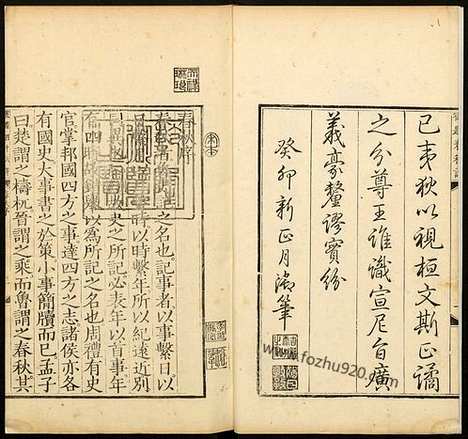 已夷狄以視桓文斯正譎
之分尊王誰識宣尼旨廣
義豪釐謬實紛
癸卯新正月御筆
春秋序
春秋者之名也記事者以事繫日以
以時繫年所以紀遠近別
史之所記必表年以首事年
有四時故錯舉以為所記之名也周禮有史
官掌邦國四方之事達四方之志諸侯亦各
有國史大事書之於策小事簡牘而已孟子
曰楚謂之檮杌晉謂之乘而魯謂之春秋其
www.fozhu920.com